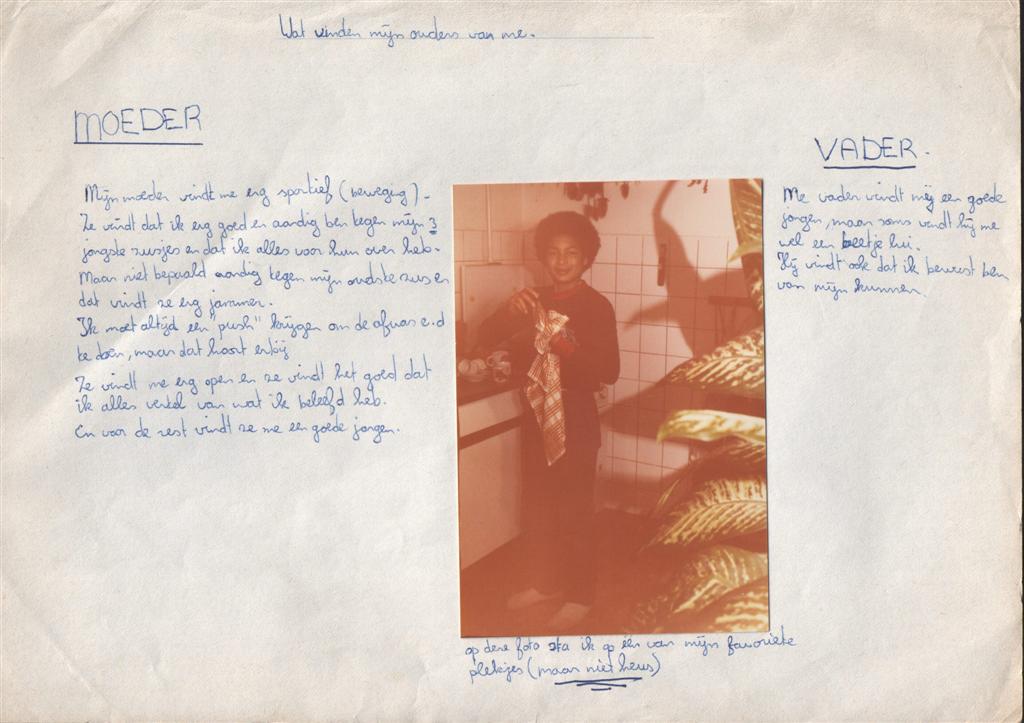 Wat vinden mijn ouders van me.
MOEDER
Mijn moeder vindt me erg sportief (beweging).
Ze vindt dat ik erg goed en aardig ben tegen mijn 3
jongste zusjes en dat ik alles voor hun over heb.
Maar niet bepaald aardig tegen mijn oudste zus en
dat vindt ze erg jammer.
Ik moet altijd een "push" krijgen om de afwas e.d
te doen, maar dat hoort erbij
Ze vindt me erg open en ze vindt het goed dat
ik alles vertel van wat ik beleefd heb.
En voor de rest vindt ze me een goede jongen.
VADER.
Me vader vindt mij een goede
jongen, maar soms vindt hij me
wel een beetje lui.
Hij vindt ook dat ik bewust ben
van mijn kunnen.
op deze foto sta ik op één van mijn favoriete
plekjes (maar niet heus)